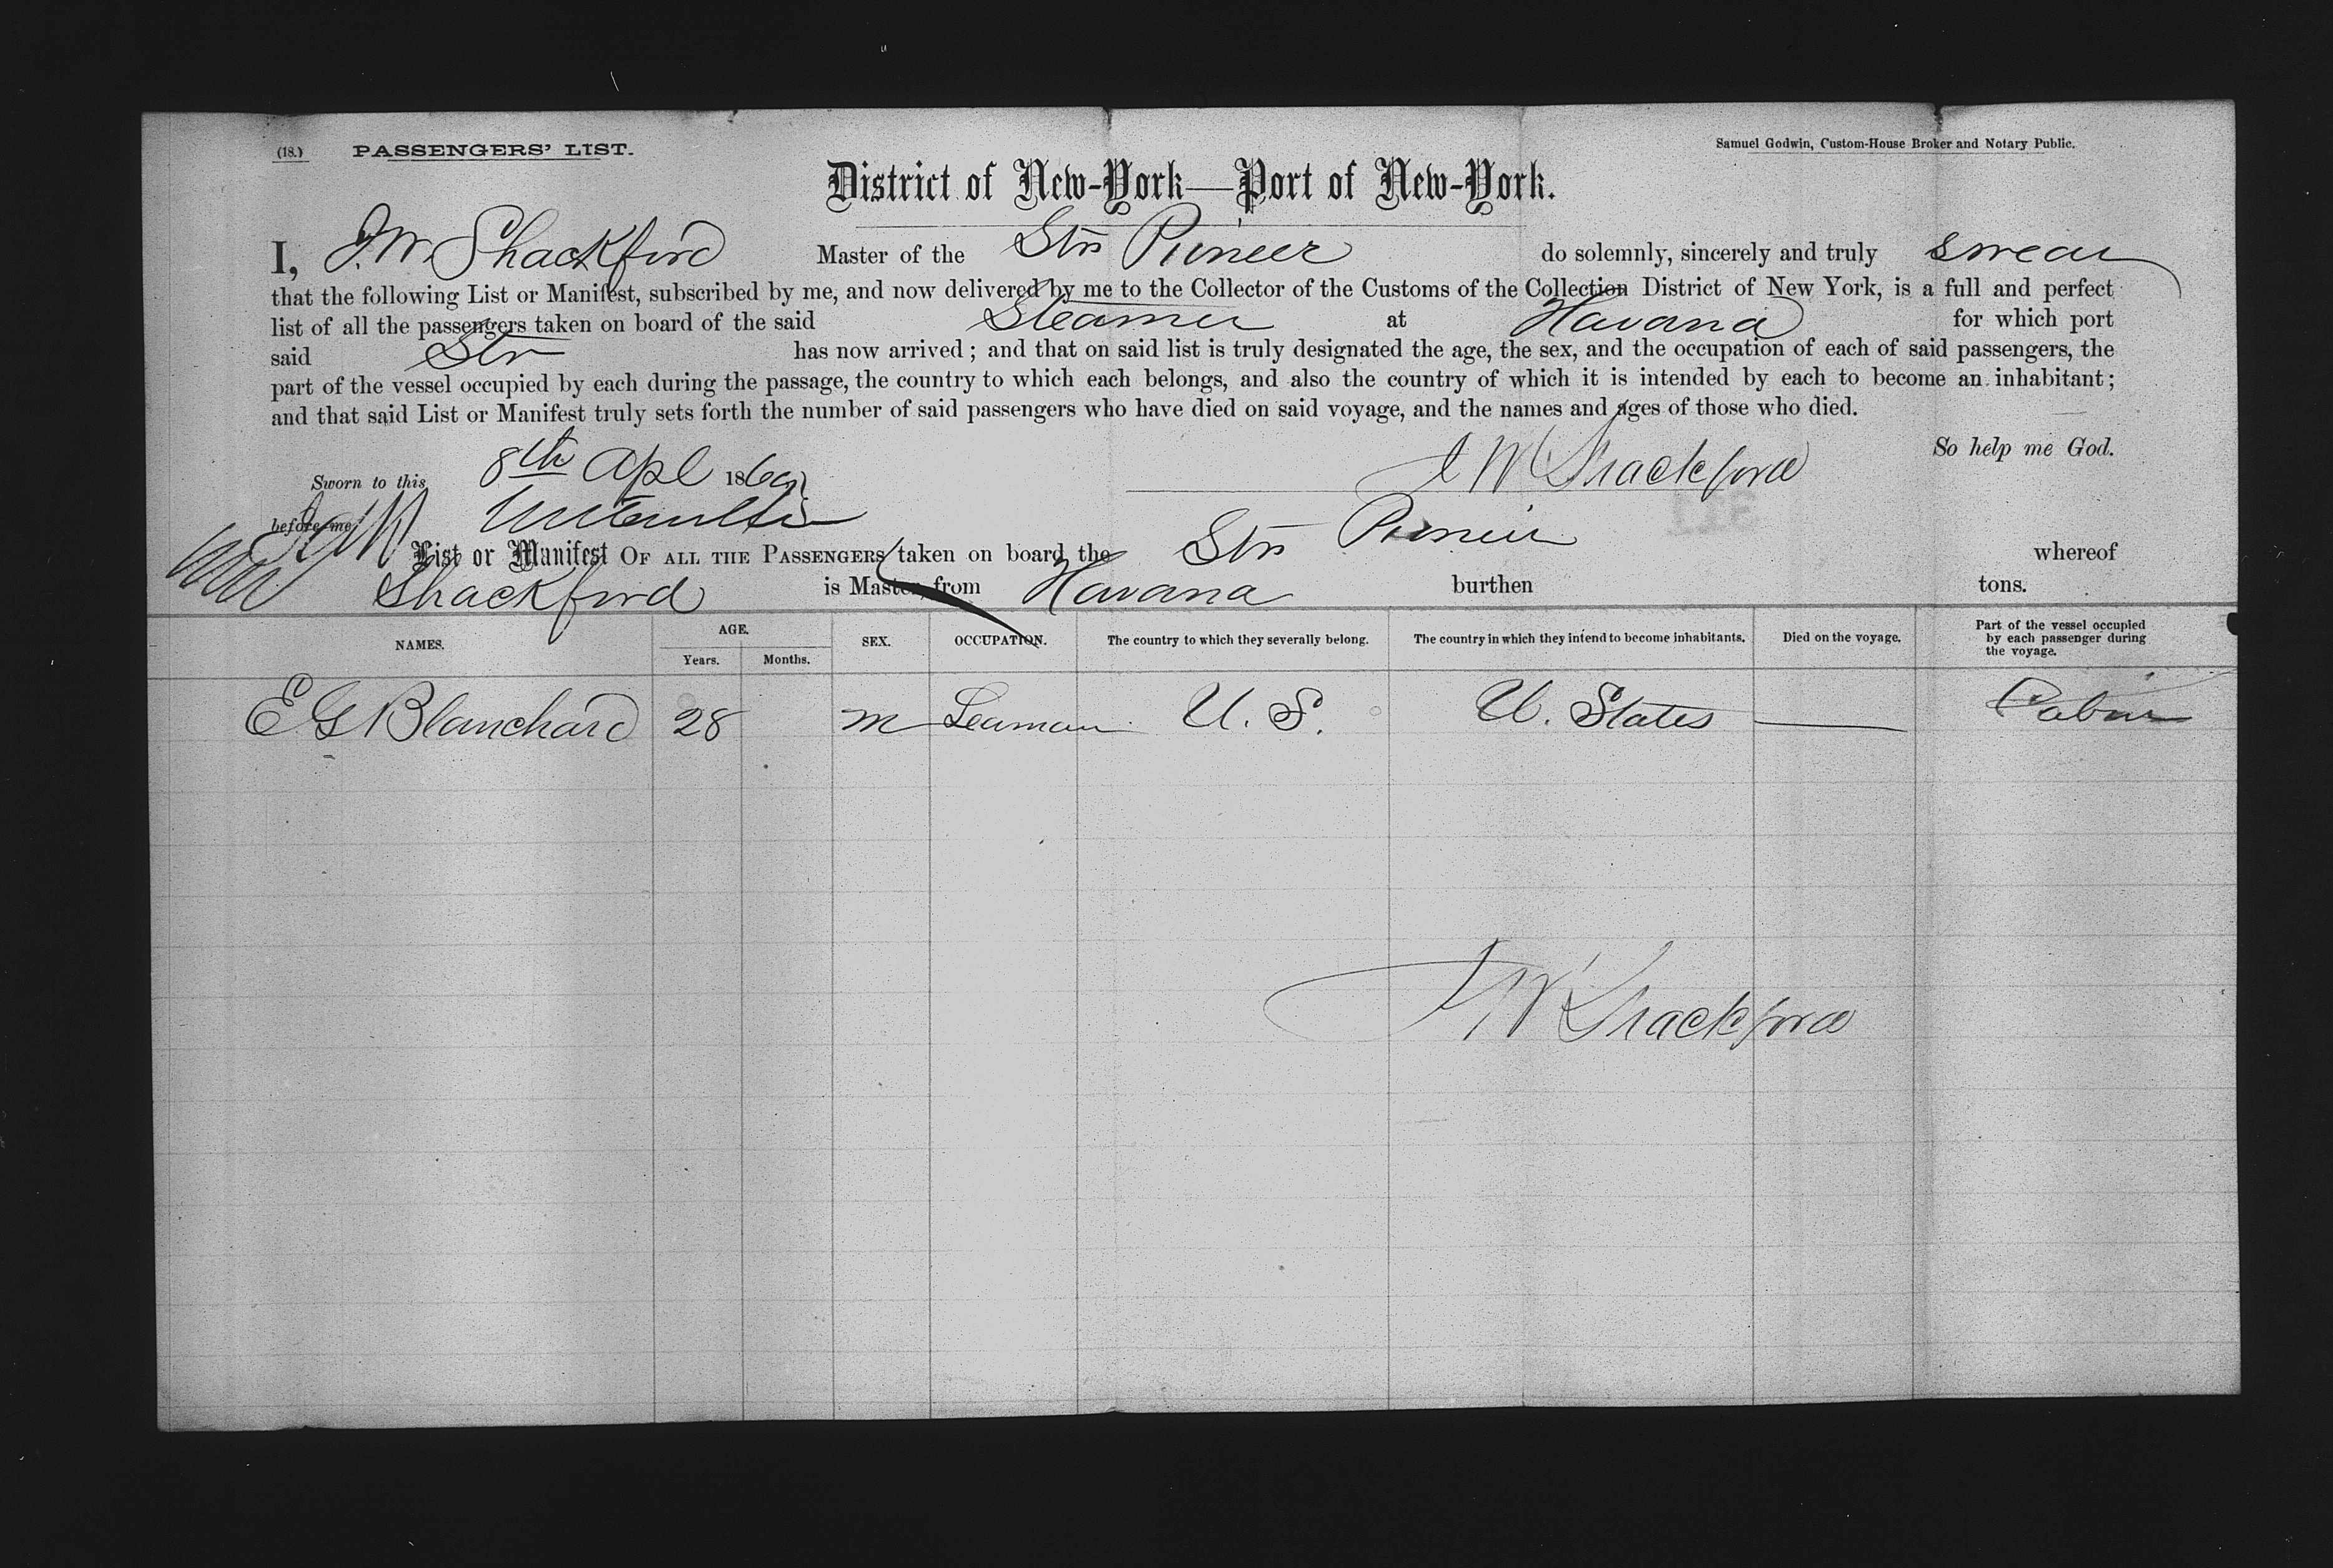 (18.) PASSENGERS' LIST.
Samuel Godwin, Custom-House Broker and Notary Public.
District of New-York—Port of New-York.
I, J. W. Shackford Master of the Str Pioneer do solemnly, sincerely and truly swear
that the following List or Manifest, subscribed by me, and now delivered by me to the Collector of the Customs of the Collection District of New York, is a full and perfect
list of all the passengers taken on board of the said Steamer at Havana for which port
said Str has now arrived; and that on said list is truly designated the age, the sex, and the occupation of each of said passengers, the
part of the vessel occupied by each during the passage, the country to which each belongs, and also the country of which it is intended by each to become an inhabitant;
and that said List or Manifest truly sets forth the number of said passengers who have died on said voyage, and the names and ages of those who died.
So help me God.
Sworn to this 8th Apl 1869 J W Shackford
before me
List or Manifest OF ALL THE PASSENGERS taken on board the Str Pioneer whereof
Shackford is Master, from Havana burthen tons.
NAMES. AGE. Years. Months. SEX. OCCUPATION. The country to which they severally belong. The country in which they intend to become inhabitants. Died on the voyage. Part of the vessel occupied by each passenger during the voyage.
E G Blanchard 28 m Seaman U. S. U. States — Cabin
J W Shackford